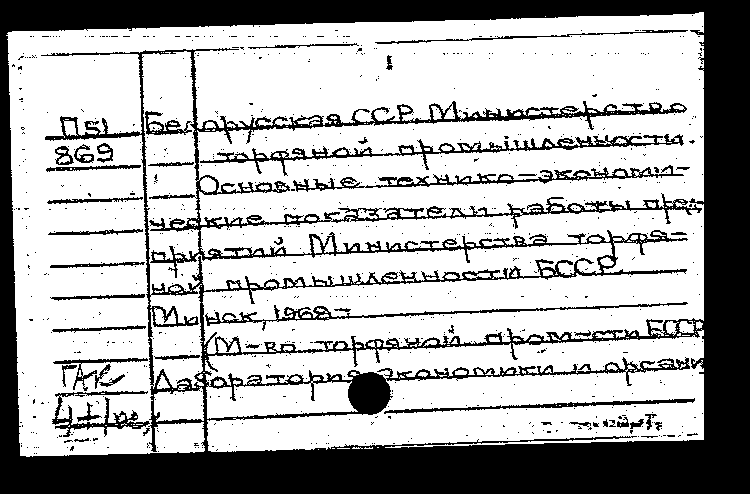 П51 Белорусская ССР. Министерство
869 торфяной промышленности.
Основные технико-экономи-
ческие показатели работы пред-
приятий Министерства торфя-
ной промышленности БССР
Минск, 1968-
(М-во торфяной пром-сти БССР
Лаборатория экономики и органи